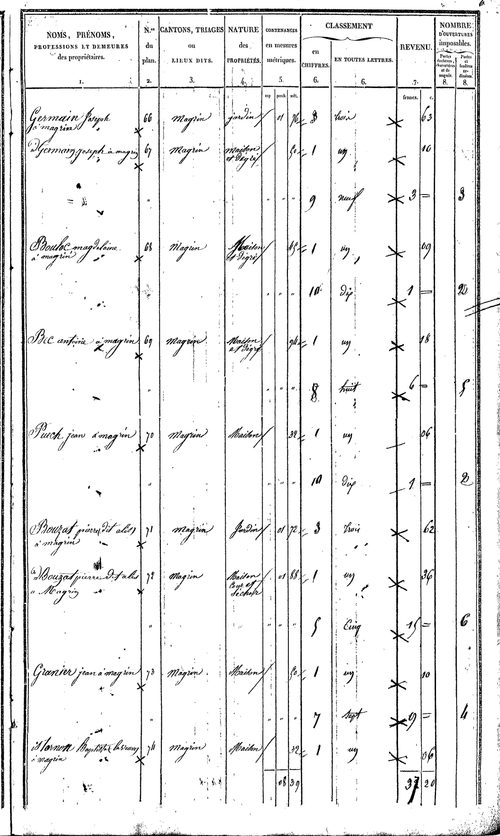 NOMS, PRÉNOMS,
PROFESSIONS ET DEMEURES
des propriétaires.
1.
N.os
du
plan.
2.
CANTONS, TRIAGES
ou
LIEUX DITS.
3.
NATURE
des
PROPRIÉTÉS.
4.
CONTENANCES
en mesures
métriques.
5.
CLASSEMENT
en
CHIFFRES.
6.
EN TOUTES LETTRES.
6.
REVENU.
7.
NOMBRE
D'OUVERTURES
imposables.
8.
8.
francs. c.
Germain Joseph 66 Magrin jardin 01 76 3 trois 63
à magrin
Germain joseph à magrin 67 Magrin maison 50 1 un 10
9 neuf 3 = 3
Bouloc magdelaine 68 Magrin Maison 45 1 un 09
à magrin
10 dix 1 = 2
Bec à magrin 69 magrin Maison 94 1 un 18
8 huit 6 = 5
Puech jean à magrin 70 Magrin Maison 32 1 un 06
10 dix 1 = 2
Bouzat pierre dit 71 magrin Jardin 01 72 3 trois 62
à magrin
Bouzat pierre dit 72 magrin Maison 01 88 1 un 36
a Magrin
5 Cinq 15 = 6
Granier jean à magrin 73 Magrin Maison 50 1 un 10
7 Sept 9 = 4
74 magrin Maison 32 1 un 06
à magrin
08 39 37 20